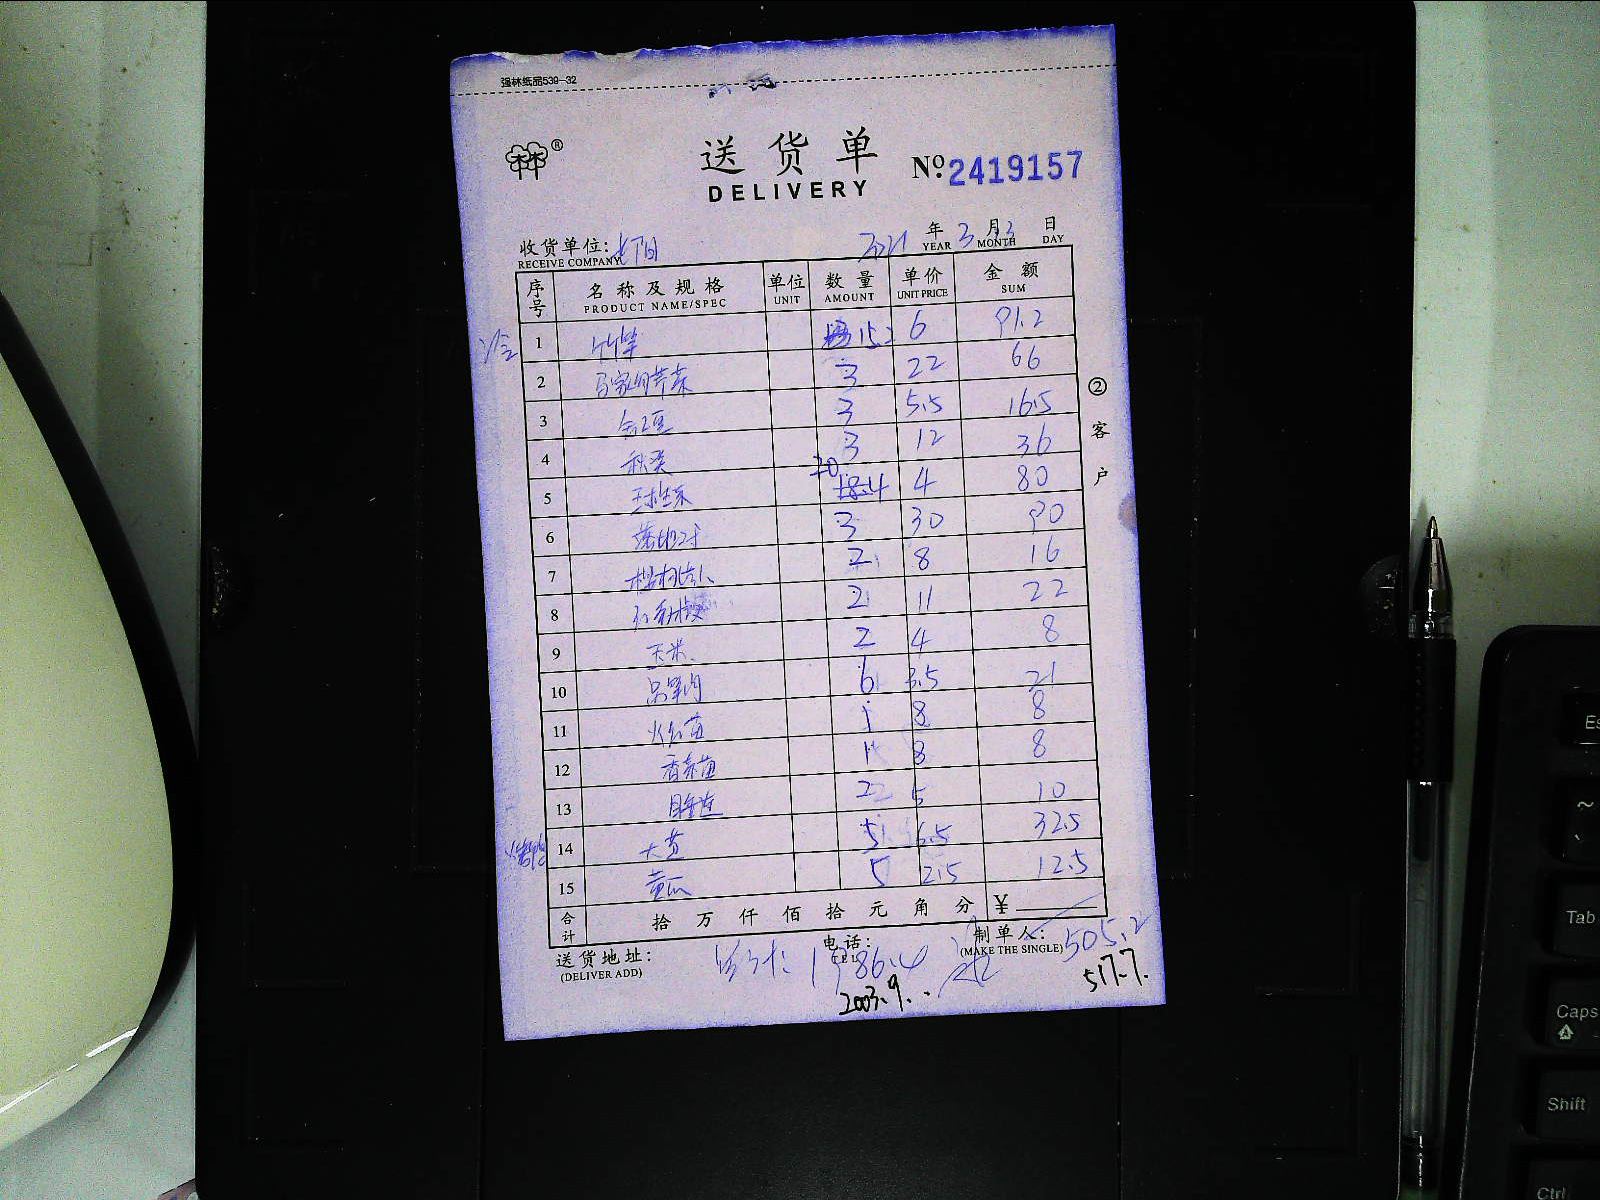 强林纸品539-32
送货单
DELIVERY
№: 2419157
收货单位:
RECEIVE COMPANY
2021 年 3 月 3 日
YEAR MONTH DAY
序号 名称及规格 单位 数量 单价 金额
PRODUCT NAME/SPEC UNIT AMOUNT UNIT PRICE SUM
1 竹笋 15.2 6 91.2
2 3 22 66
3 3 5.5 16.5
4 秋葵 3 12 36
5 20 18.4 4 80
6 3 30 90
7 2 8 16
8 2 11 22
9 玉米 2 4 8
10 6 3.5 21
11 1 8 8
12 香菜苗 1 8 8
13 2 5 10
14 大黄 5 6.5 32.5
15 黄瓜 5 2.5 12.5
合计 拾 万 仟 佰 拾 元 角 分 ¥
② 客户
送货地址: 电话: 制单人: 505.2
(DELIVER ADD) TEL (MAKE THE SINGLE)
1986.4
2003.9.. 517.7.
Es
~
Tab
Caps
Shift
Ctrl